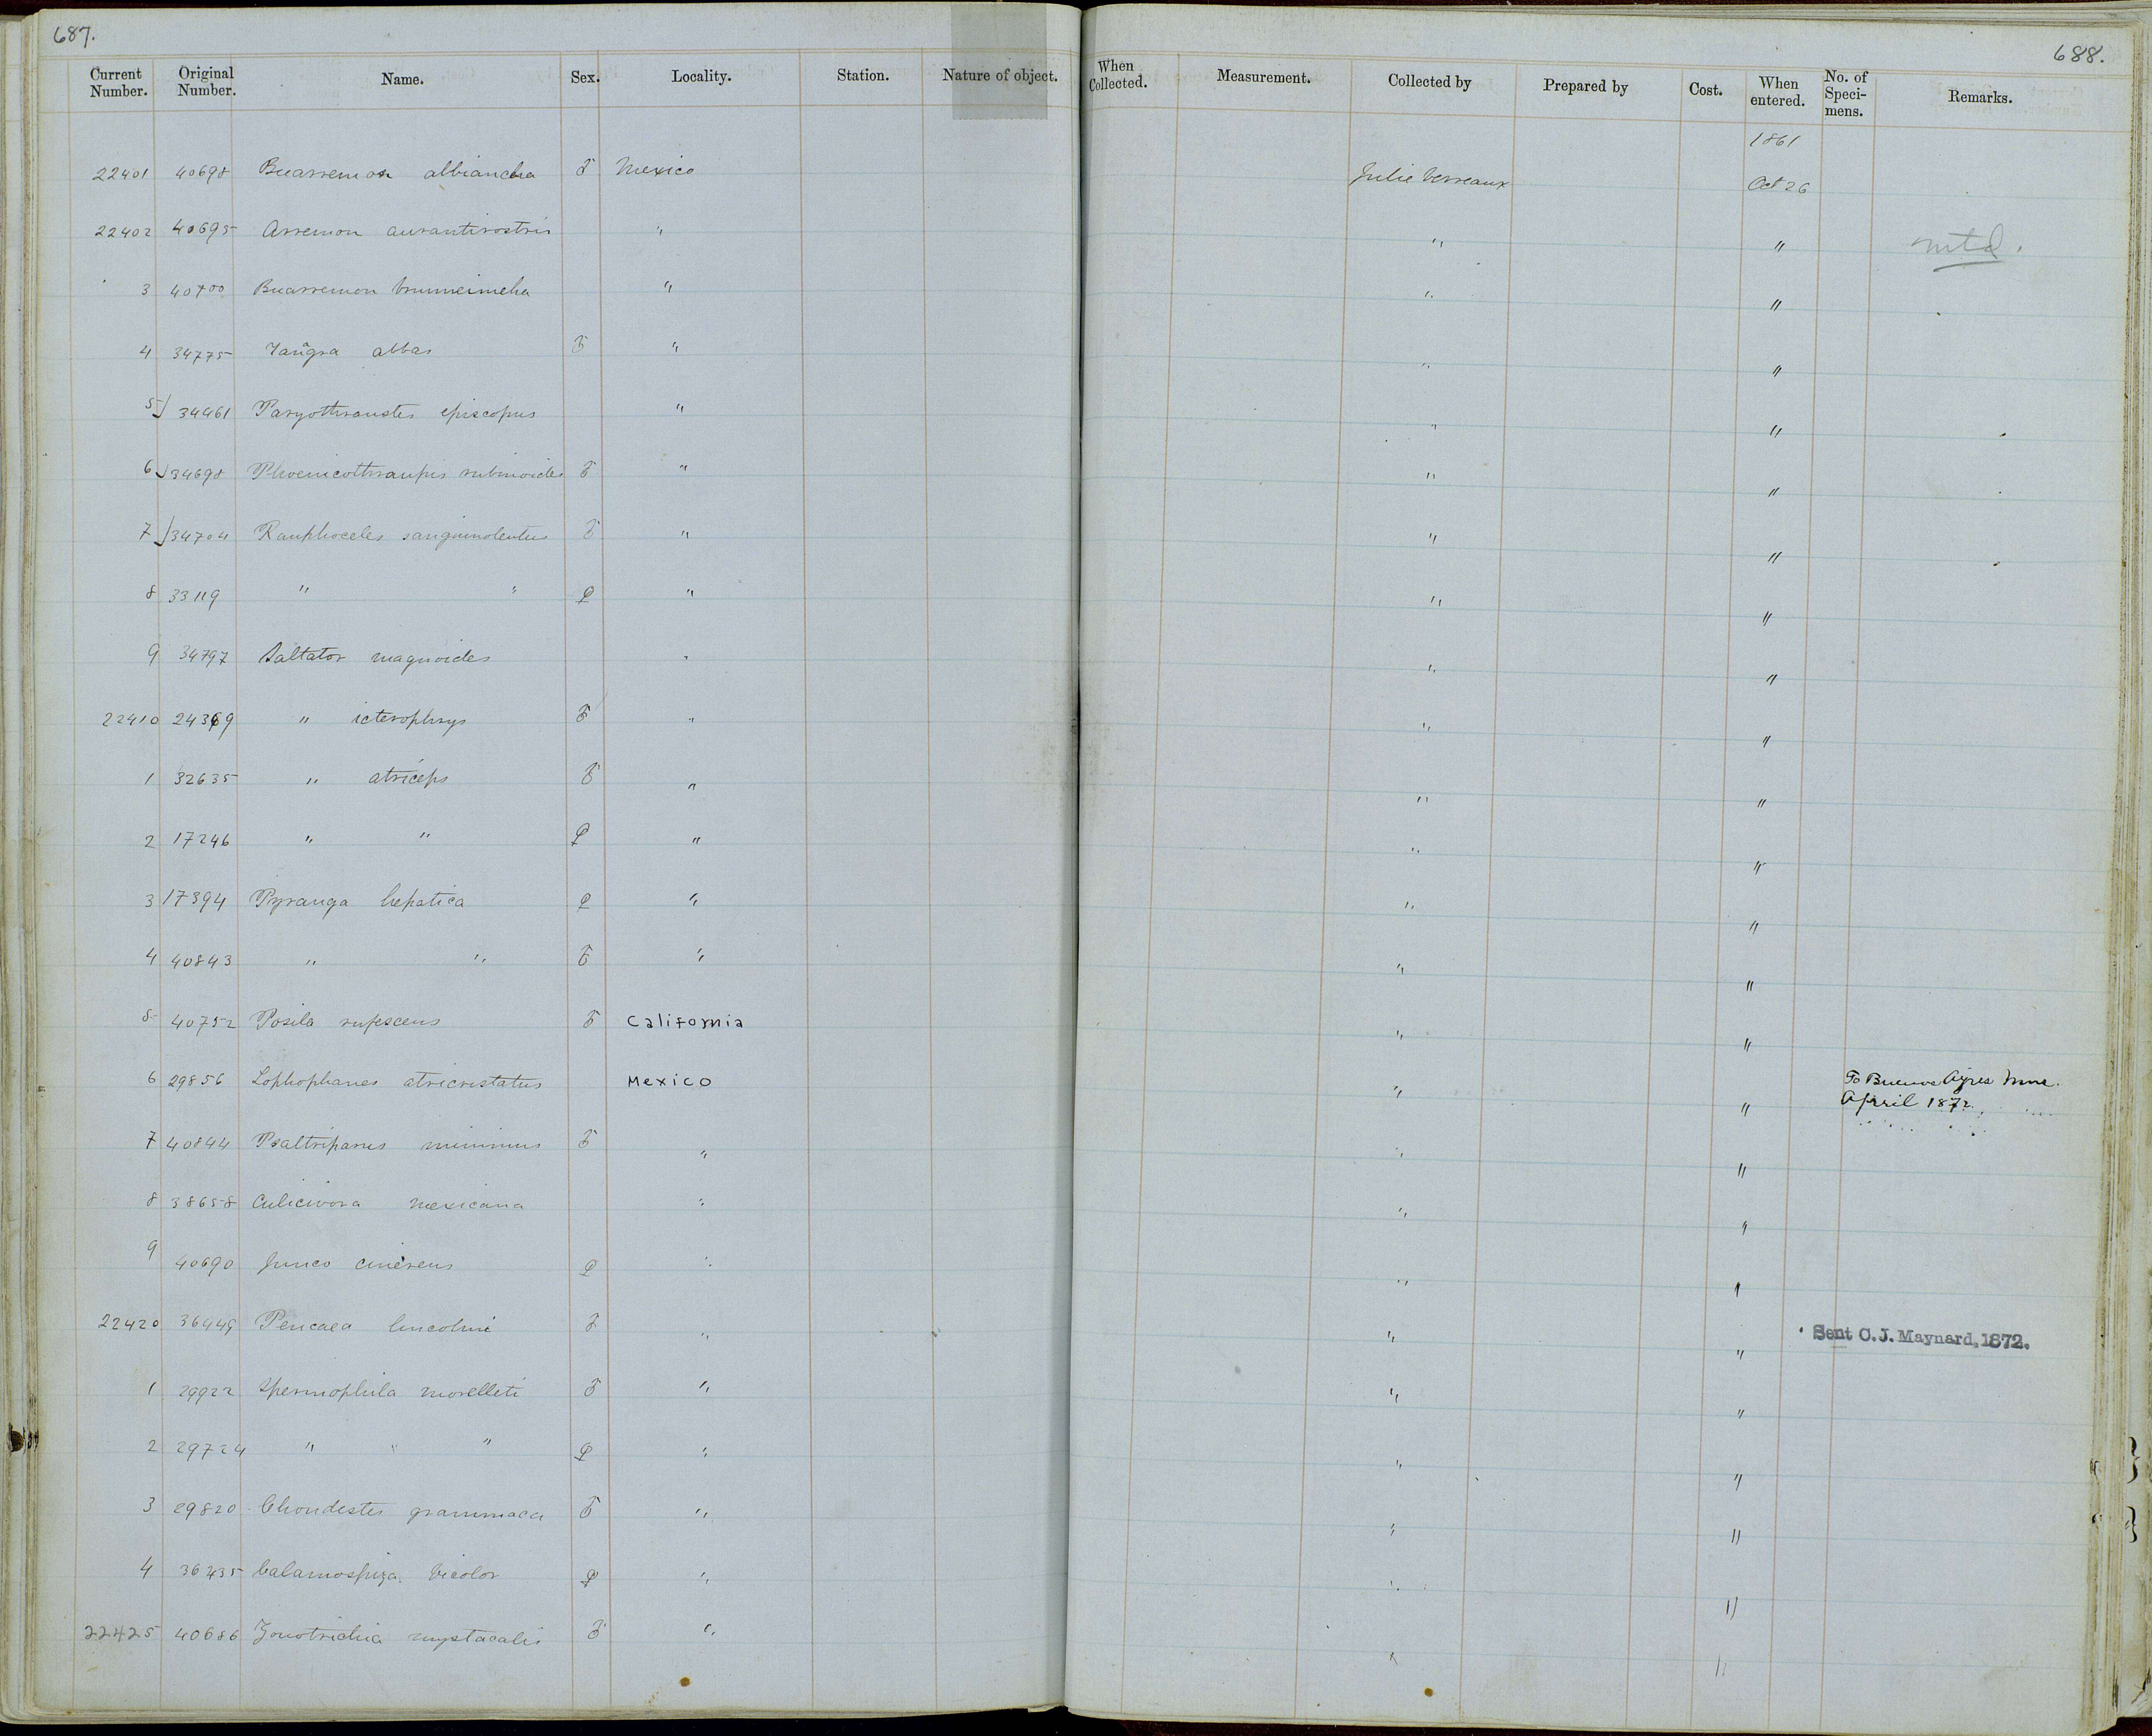 687.
688.
Current Number. Original Number. Name. Sex. Locality. Station. Nature of object. When Collected. Measurement. Collected by Prepared by Cost. When entered. No. of Speci- mens. Remarks.
1861
22401 40698 Buarremon albiancha ♂ Mexico Julie Verreaux Oct 26
22402 40695 Arremon aurantirostris " " " mtd.
3 40700 Buarremon brunneinucha " " "
4 34775 Tangra abbas ♂ " " "
5 34461 Paryothraustes episcopus " " "
6 34698 Phoenicothraupis rubinoides ♂ " " "
7 34704 Ramphoceles sanguinolentus ♂ " " "
8 33119 " " ♀ " " "
9 34797 Saltator magnoides " " "
22410 24369 " icterophrys ♂ " " "
1 32635 " atriceps ♂ " " "
2 17246 " " ♀ " " "
3 17394 Pyranga hepatica ♀ " " "
4 40843 " " ♂ " " "
5 40752 Posila rufescens ♂ California " "
6 29856 Lophophanes atricristatus Mexico " " To Buenos Ayres Mus. April 1872.
7 40844 Psaltriparus minimus ♂ " " "
8 38658 Culicivora mexicana " " "
9 40690 Junco cinereus ♀ " " "
22420 36449 Peucaea lincolnii ♂ " " " Sent C. J. Maynard, 1872.
1 29922 Spermophila morelleti ♂ " " "
2 29724 " " " ♀ " " "
3 29820 Chondestes grammaca ♂ " " "
4 36435 Calamospiza bicolor ♀ " " "
22425 40686 Zonotrichia mystacalis ♂ " " "